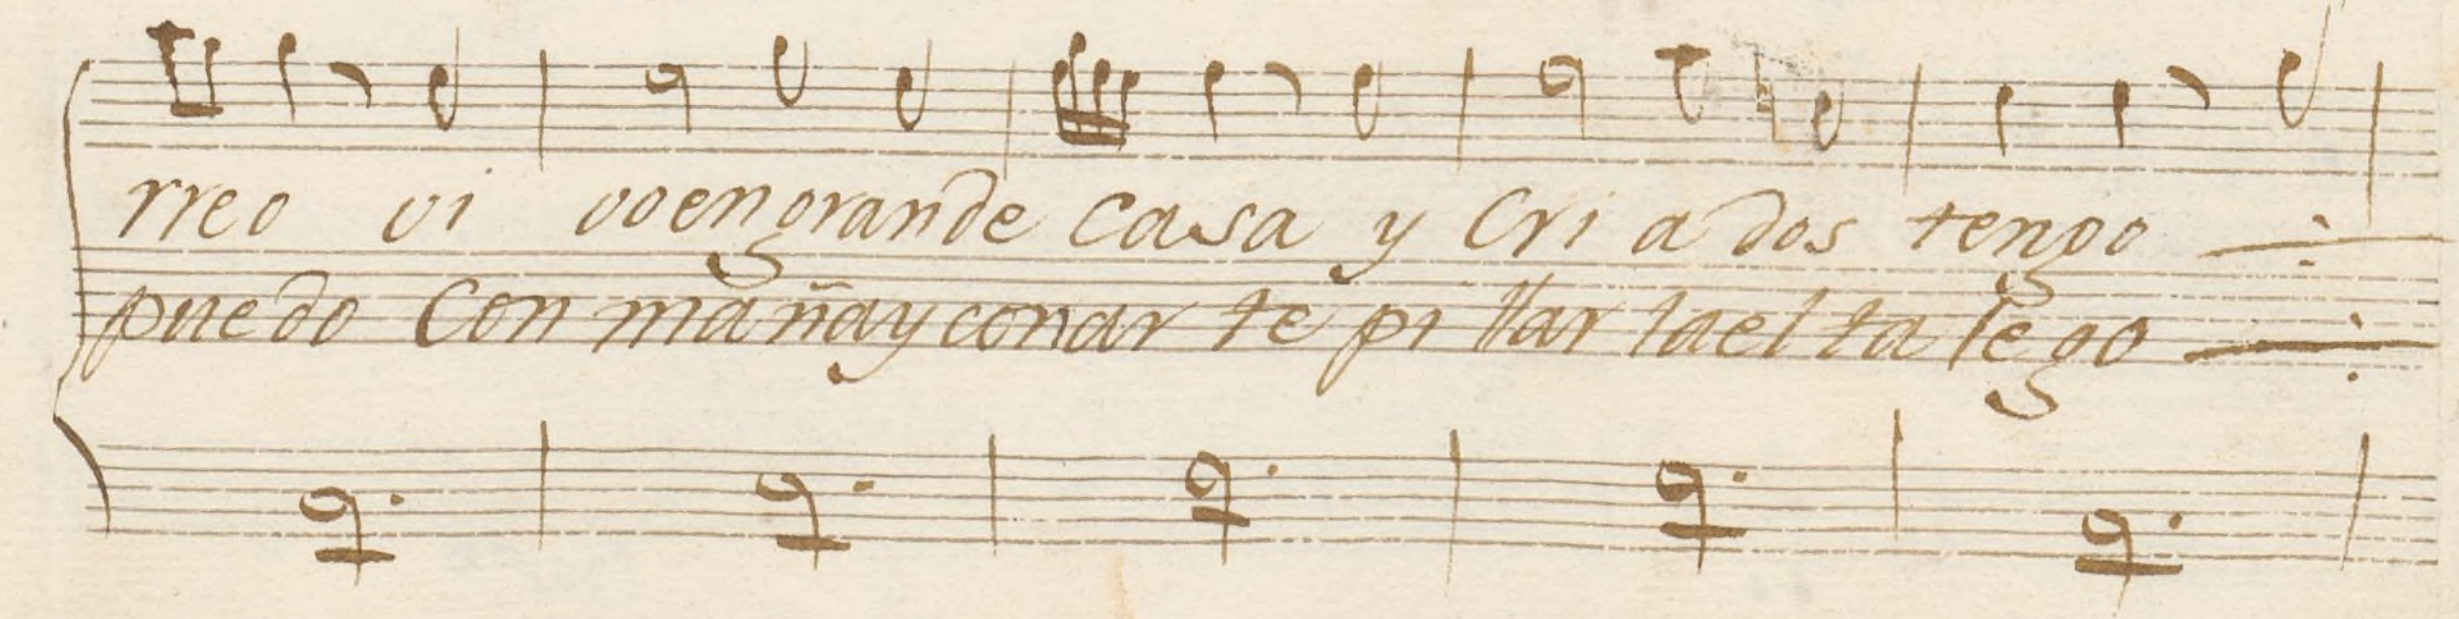 rreo vi vo en grande casa y Cri a dos tengo
puedo Con mañay con ar te pi llar la el ta le go